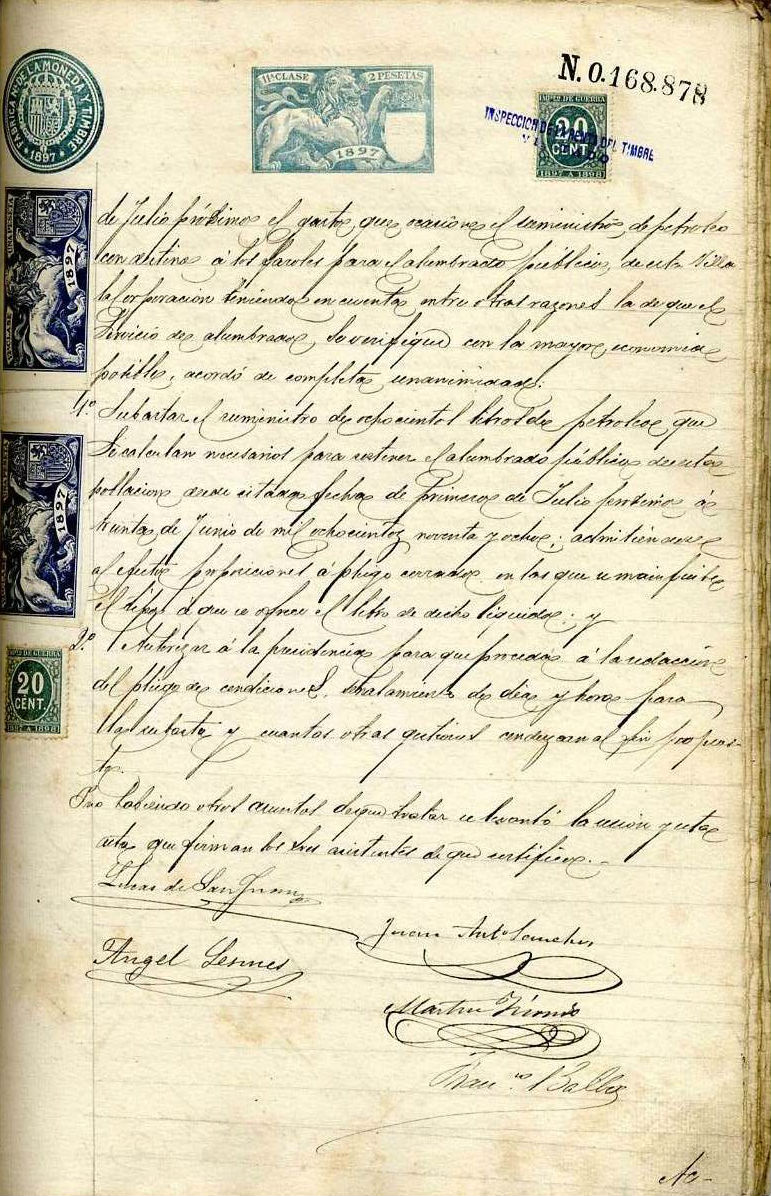 N. 0.168.878
FABRICA Nal DE LA MONEDA Y TIMBRE
1897
11ª CLASE 2 PESETAS
1897
IMPto DE GUERRA
20
CENT.
1897 A 1898
INSPECCION DE LA RENTA DEL TIMBRE
UNA PESETA
1897
1897
IMPto DE GUERRA
20
CENT.
1897 A 1898
de Julio próximo el gasto que ocasione el suministro de petroleo
con destino á los faroles para el alumbrado público de esta Villa
la Corporacion teniendo en cuenta entre otras razones la de que el
Servicio de alumbrado, se verifique con la mayor economia
posible, acordó de completa unanimidad:
1º Subastar el suministro de ochocientos litros de petroleo, que
Se calculan necesarios para sostener el alumbrado público de esta
poblacion desde citada fecha de primero de Julio proximo á
treinta de Junio de mil ochocientos noventa y ocho; admitiendose
al efecto proposiciones á pliego cerrado en las que se manifieste
el tipo á que se ofrece el litro de dicho liquido; y
2º Autorizar á la presidencia para que proceda á la redaccion
del pliego de condiciones, señalamiento de dia y hora para
la subasta y cuantas otras gestiones conduzcan al fin propues-
to.
Y no habiendo otros asuntos de que tratar se levantó la sesion y esta
acta que firman los Sres asistentes de que certifico.-
Lucas de San Juan
Juan Anto Sanchez
Angel
Martin
Franco
Ac-